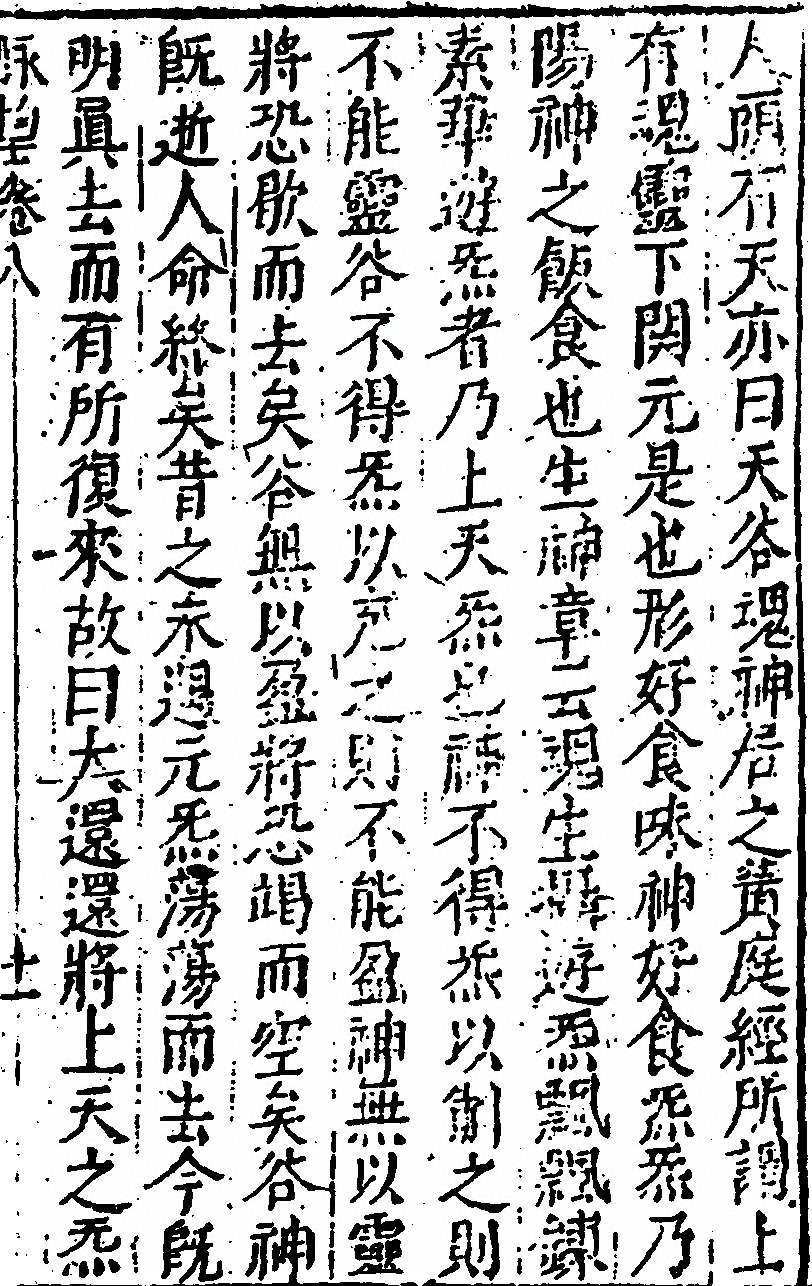 人頭有天亦曰天谷魂神居之黄庭經所謂上
有魂靈下関元是也形好食味神好食炁炁乃
陽神之飯食也生神章云魂生無遊炁飄飄錬
素華遊炁者乃上天炁也神不得炁以制之則
不能靈谷不得炁以充之則不能盈神無以靈
將恐歇而去矣谷無以盈將恐竭而空矣谷神
旣逝人命終矣昔之未過元炁蕩蕩而去今旣
明眞去而有所復來故曰大還還將上天之炁
脉望卷八 十一